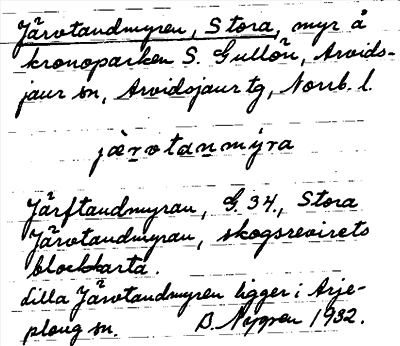 Järvtandmyren, Stora, myr å
kronoparken S. Gullön, Arvids-
jaur sn, Arvidsjaur tg, Norrb. l.
jærvtanmýra
Järftandmyran, G. 34., Stora
Järvtandmyran, skogsrevirets
blockkarta.
Lilla Järvtandmyren ligger i Arje-
ploug sn. B. Nygren 1932.